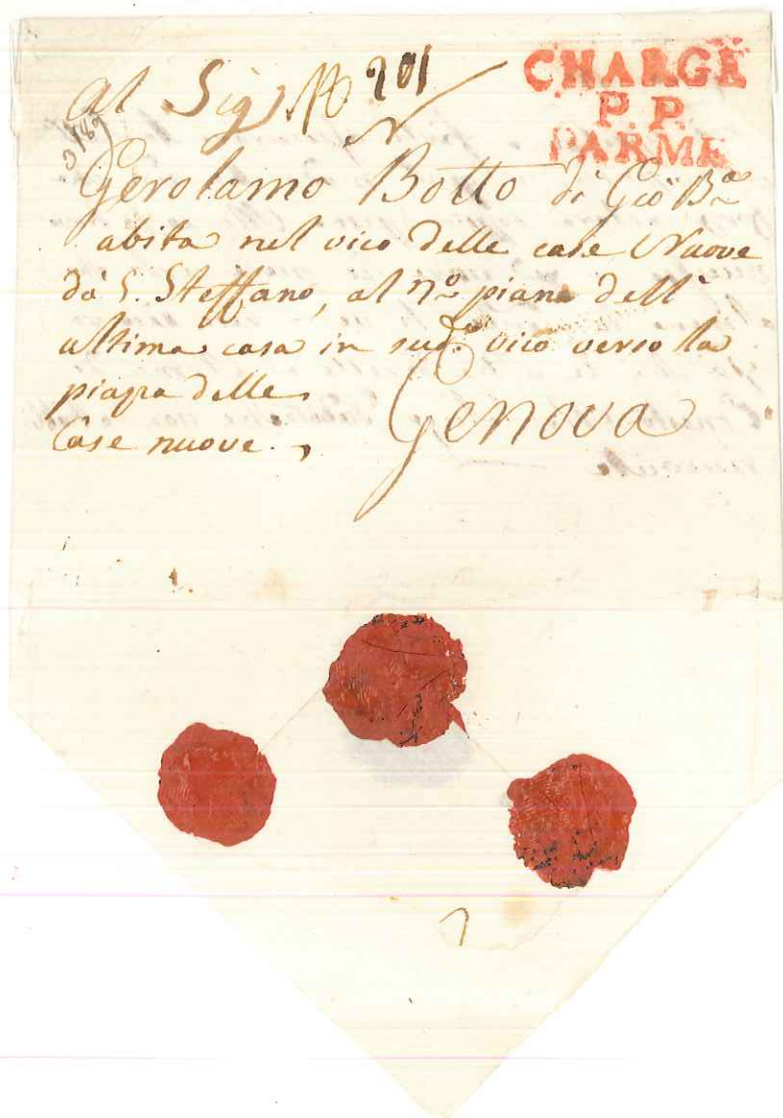 al Sig.r N 201
CHARGÉ
P. P.
PARME
Gerolamo Botto di Gio Bta
abita nel vico delle case Nuove
da S. Steffano, al n.o piano dell'
ultima casa in sud.o vico verso la
piazza delle
Case nuove.
Genova